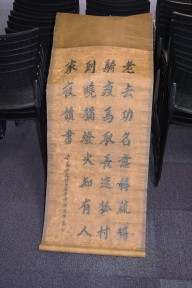 老去功名意轉疏獨
騎瘦馬取長途孤村
到曉猶燈火知有人
家夜讀書